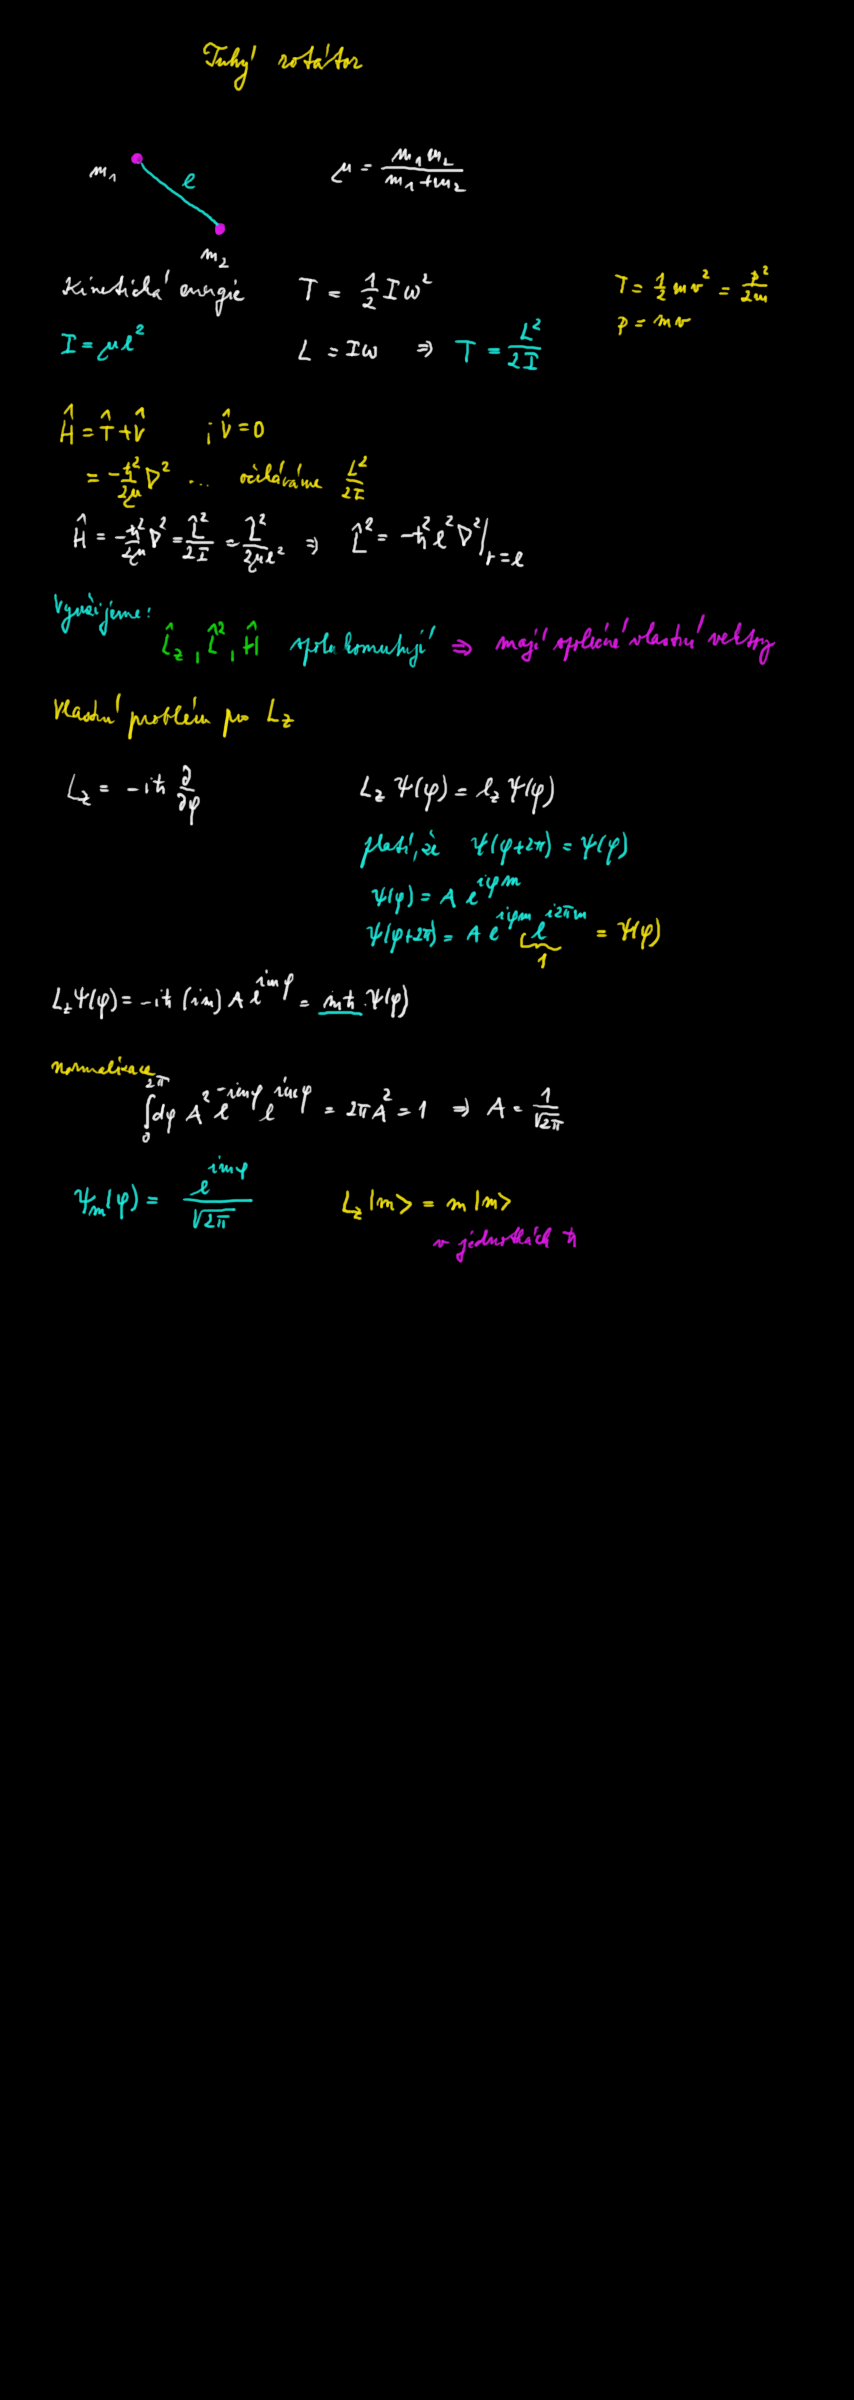 Tuhý rotátor
m₁ l m₂ μ = m₁m₂/(m₁+m₂)
Kinetická energie T = 1/2 Iω² T = 1/2 mv² = p²/2m
p = mv
I = μl² L = Iω ⇒ T = L²/2I
Ĥ = T̂ + V̂ ; V̂ = 0
= -ħ²/2μ ∇² ... očekáváme L²/2I
Ĥ = -ħ²/2μ ∇² = L̂²/2I = L̂²/2μl² ⇒ L̂² = -ħ²l²∇²|r=l
Využijeme:
L̂z, L̂², Ĥ spolu komutují ⇒ mají společné vlastní vektory
Vlastní problém pro Lz
Lz = -iħ ∂/∂φ Lz ψ(φ) = lz ψ(φ)
platí, že ψ(φ+2π) = ψ(φ)
ψ(φ) = A e^{iφm}
ψ(φ+2π) = A e^{iφm} e^{i2πm} = ψ(φ)
1
Lzψ(φ) = -iħ (im) A e^{imφ} = mħ ψ(φ)
normalizace
∫₀^{2π} dφ A² e^{-imφ} e^{imφ} = 2πA² = 1 ⇒ A = 1/√2π
ψm(φ) = e^{imφ}/√2π Lz |m> = m |m>
v jednotkách ħ